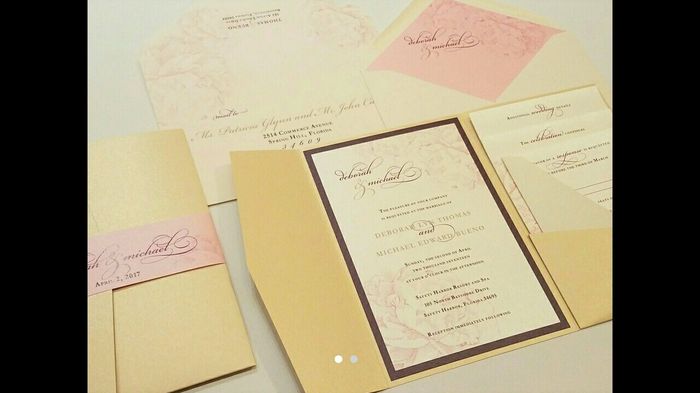 Thomas · Bueno
deborah
& michael
mail to
Ms. Patricia Glynn and Mr. John
2514 Commerce Avenue
Spring Hill, Florida
34609
deborah
& michael
The pleasure of your company
is requested at the marriage of
Deborah Lyn Thomas
and
Michael Edward Bueno
Sunday, the second of April
two thousand seventeen
at four o'clock in the afternoon
Safety Harbor Resort and Spa
105 North Bayshore Drive
Safety Harbor, Florida 34695
Reception immediately following
Additional wedding details
The celebration continues
response is requested
the third of March
& michael
April 2, 2017